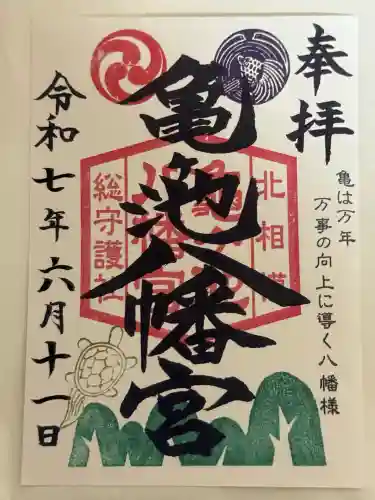 奉拝
亀は万年
万事の向上に導く八幡様
北相模
総守護社
亀ヶ池八幡宮
令和七年六月十一日